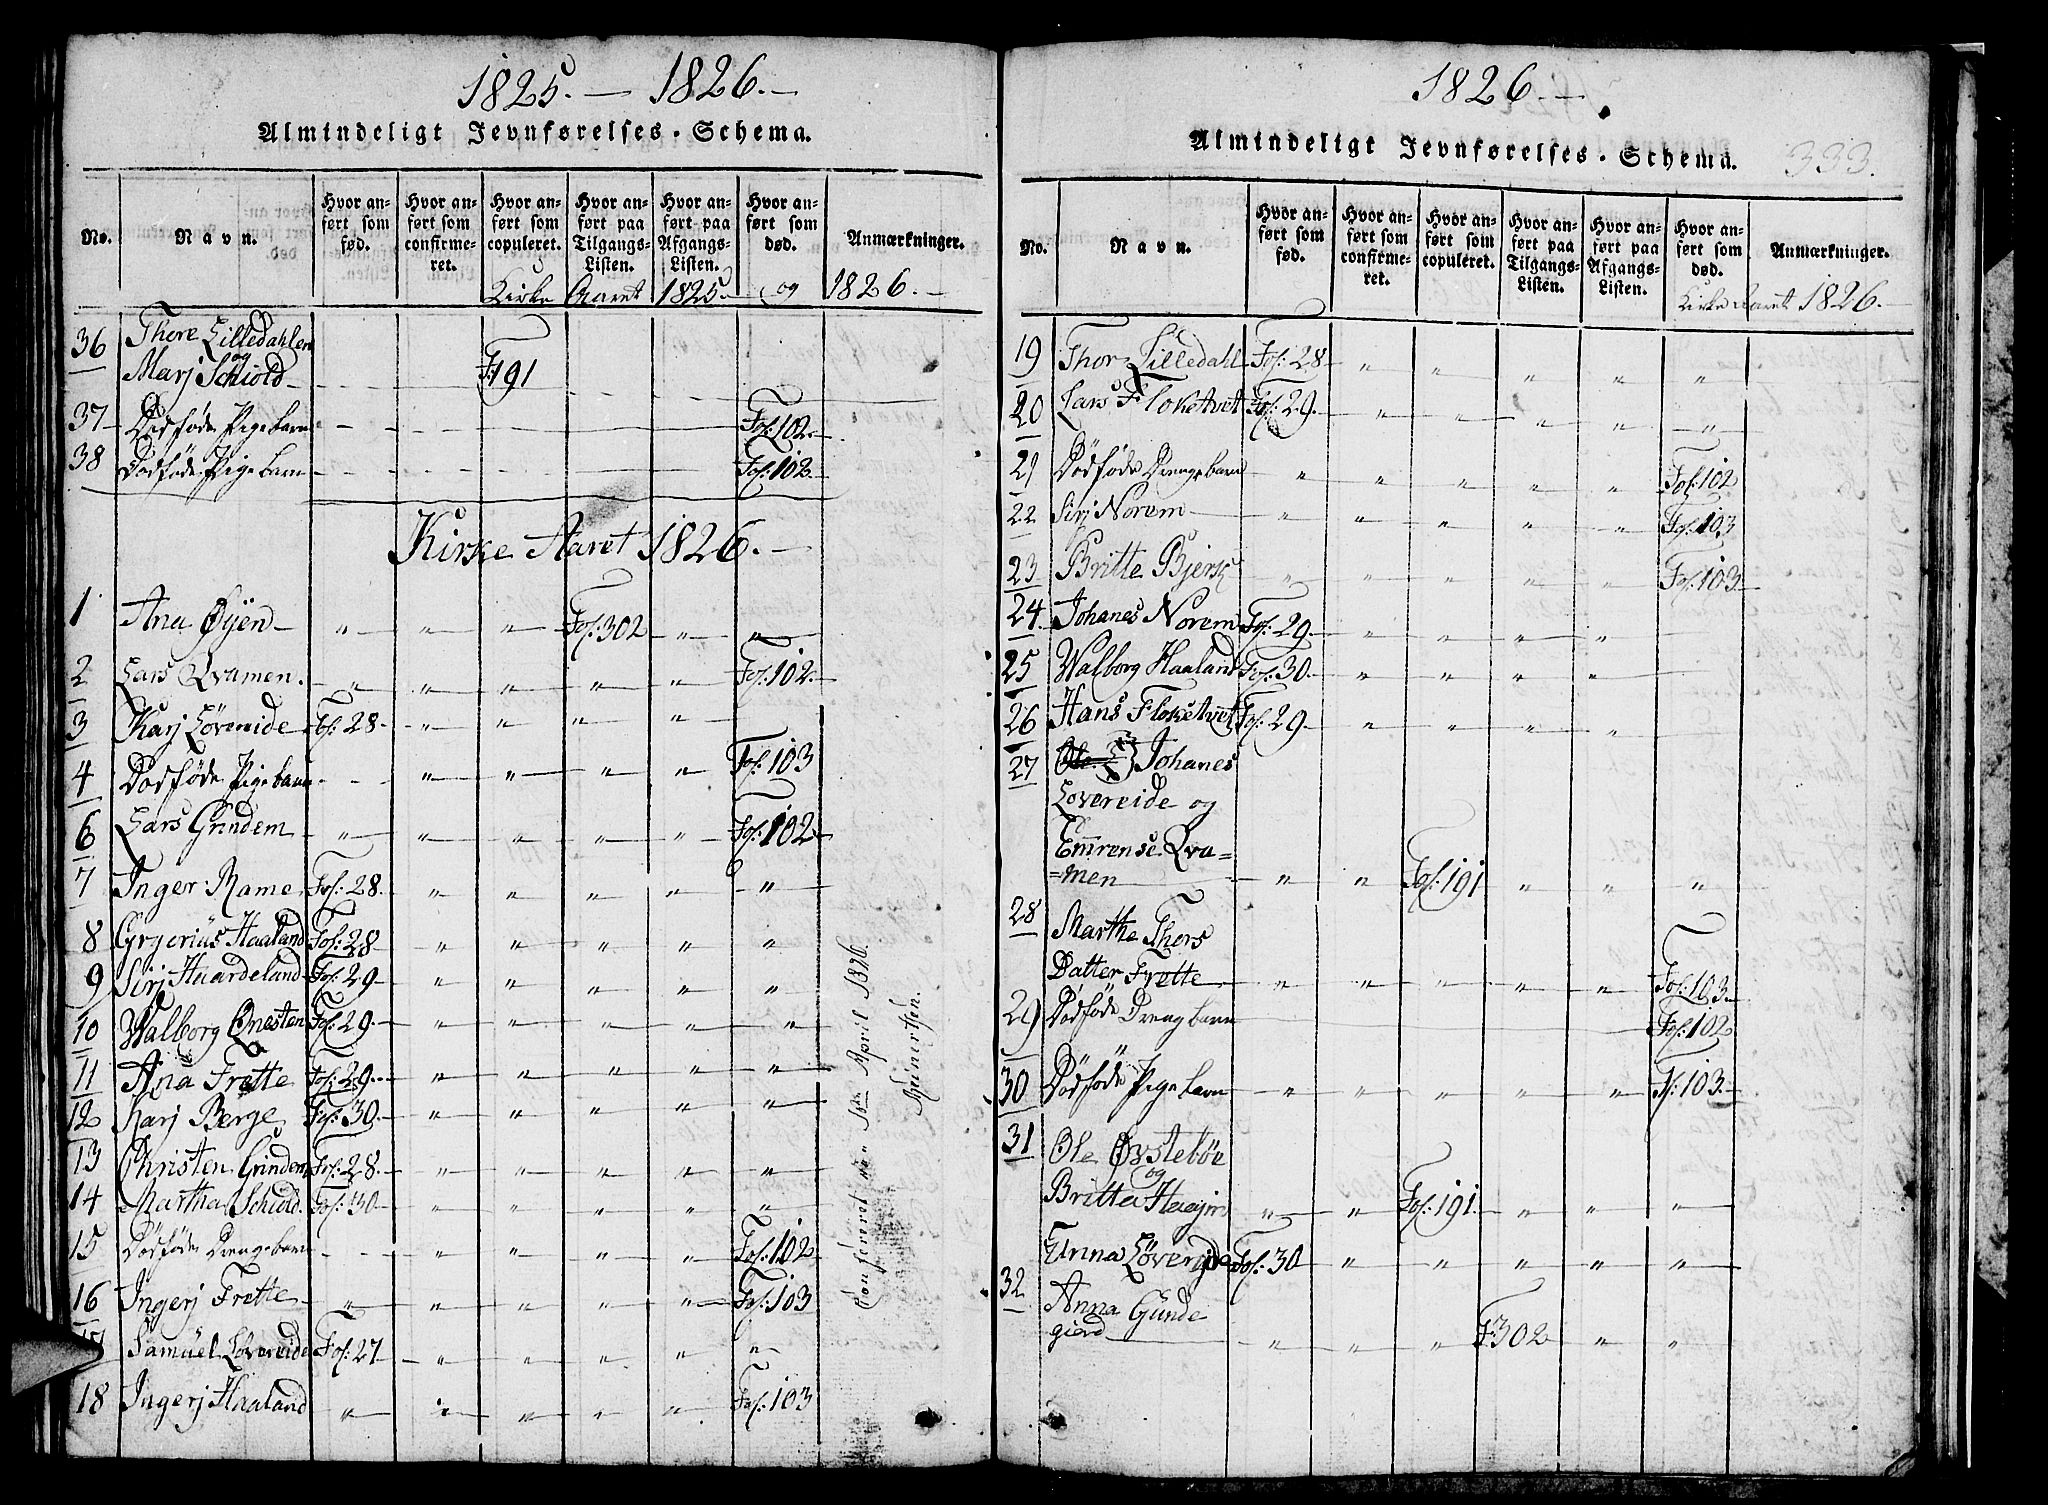 1825. — 1826. —
Almindeligt Jevnførelses-Schema.
No.
Navn.
Hvor anført som fød.
Hvor anført som confirmeret.
Hvor anført som copuleret.
Hvor anført paa Tilgangs-Listen.
Hvor anført paa Afgangs-Listen.
Hvor anført som død.
Anmærkninger.
Kirke Aaret 1825 og 1826. —
36 Thore Lilledahlen
og
Marj Schiold — F: 191
37 Dødføde Pigebarn Fol: 102. —
38 Dødføde Pigebarn Fol: 102. —
Kirke Aaret 1826. —
1 Ana Øyen — " " " Fol: 302 " "
2 Lars Qvamen. " " " " " Fol: 102. —
3 Karj Lövereide Fol: 28 " " " "
4 Dødføde Pigebarn " " " " Fol: 103
6 Lars Grindem " " " " " Fol: 102 —
7 Inger Rame Fol: 28. " " " " "
8 Gregerius Haaland Fol: 28 " " " " "
9 Sirj Huardeland Fol: 29 " " " " "
10 Walborg Qnesten Fol: 29. " " " " "
11 Ana Frette Fol: 29. " " " " "
12 Karj Berge Fol: 30. " " " " "
13 Christen Grindem Fol: 28. " " " " "
14 Martha Schiold. Fol: 30 " " " " "
15 Dødføde Drengebarn " " " " Fol: 102
16 Ingerj Frette " " " " " Fol: 103
17 Samüel Lövereide Fol: 27 " " " " "
18 Ingerj Haaland " " " " " Fol: 103
Confereret den 18de April 1826.
1826. —
Almindeligt Jevnførelses-Schema.
333.
No.
Navn.
Hvor anført som fød.
Hvor anført som confirmeret.
Hvor anført som copuleret.
Hvor anført paa Tilgangs-Listen.
Hvor anført paa Afgangs-Listen.
Hvor anført som død.
Anmærkninger.
Kirke Aaret 1826. —
19 Thor Lilledahl Fol: 28 " " " " "
20 Lars Floketvet Fol: 29. " " " " "
21 Dødføde Drengebarn " " " " " Fol: 102
22 Sirj Norem " " " " " Fol: 103
23 Britte Bjerk " " " " " Fol: 103
24. Johanes Norem Fol: 29. " " " "
25 Walborg Haaland Fol: 30. " " " "
26 Hans Floketvet Fol: 29 " " " "
27 Johanes
Lovereide og
Emrense Qva=
=men " " Fol: 191 " " "
28 Marthe Thors
Datter Frette " " " " " Fol: 103.
29 Dødføde Drengbarn Fol: 102
30 Dødføde Pigebarn " " " " " F: 103.
31 Ole Øvstebøe
og
Britta Haajm " " Fol: 191. " " "
Anna Lövereide Fol: 30 " " " " "
32 Anna Gunde
gierd " " " F: 302 " "